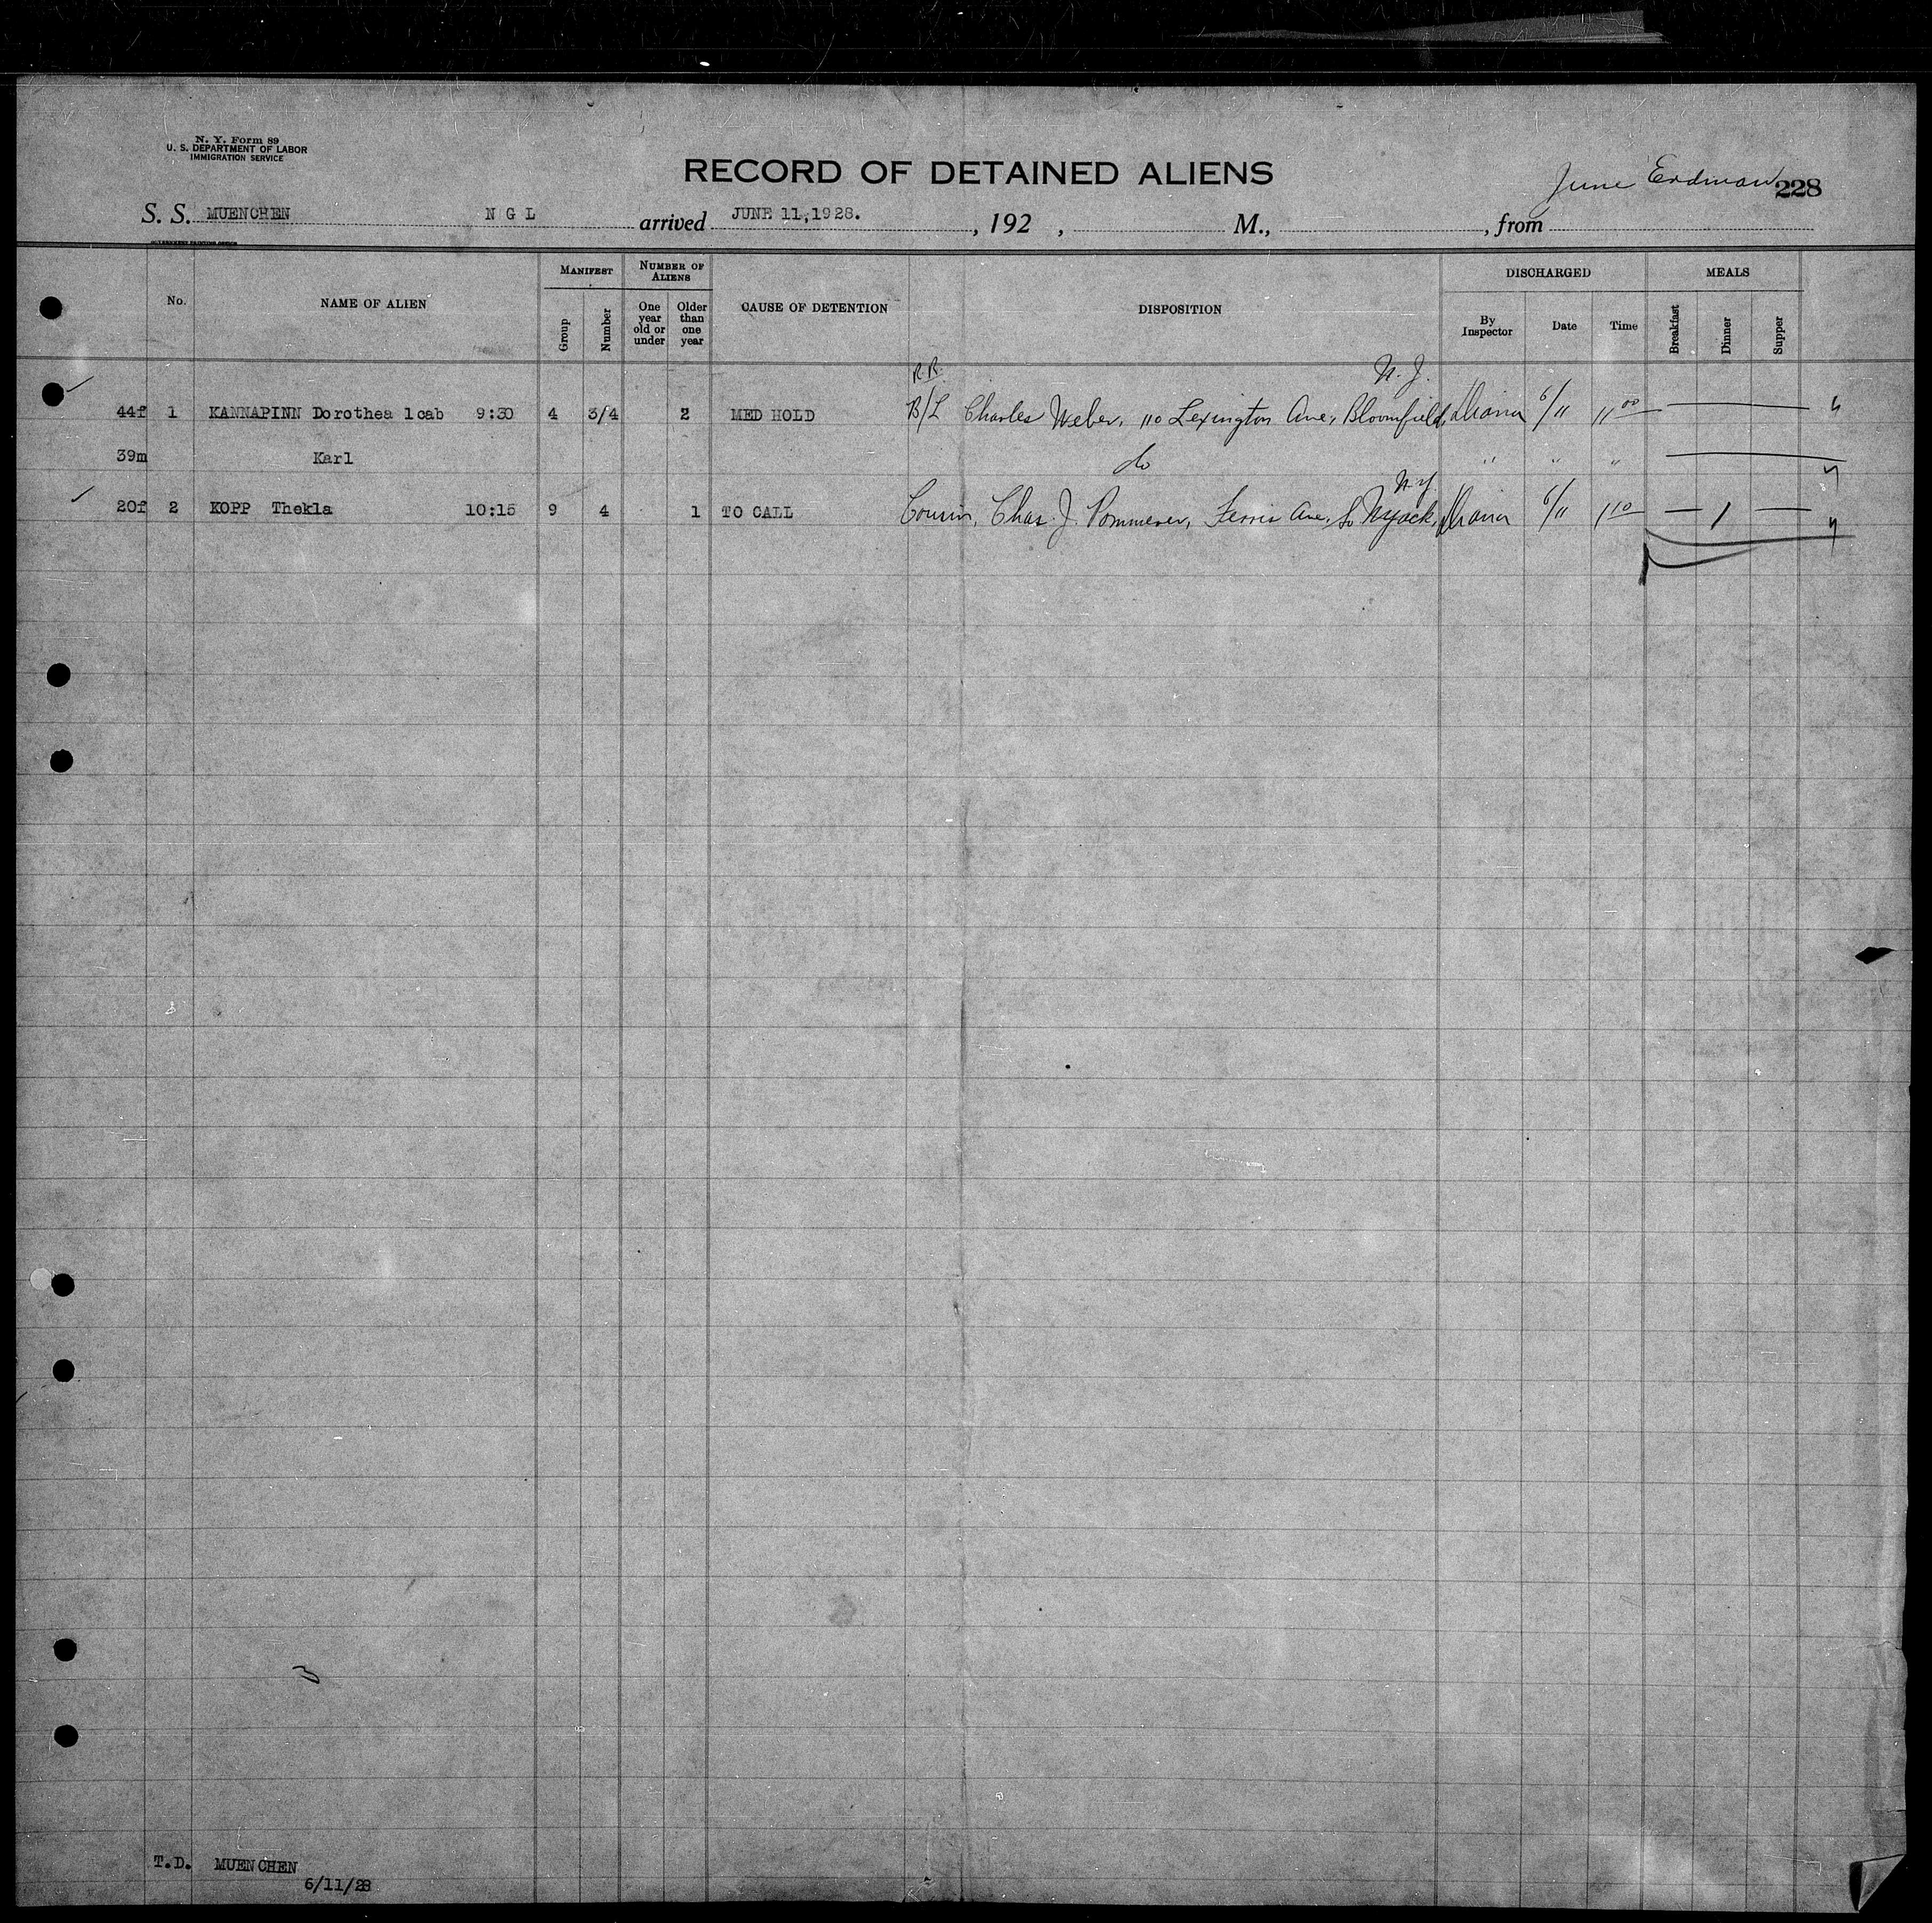 N. Y. Form 89
U. S. DEPARTMENT OF LABOR
IMMIGRATION SERVICE
RECORD OF DETAINED ALIENS
June Erdman 228
S. S. MUENCHEN N G L arrived JUNE 11, 1928. , 192 , M., , from
GOVERNMENT PRINTING OFFICE
No. NAME OF ALIEN MANIFEST Group Number NUMBER OF ALIENS One year old or under Older than one year CAUSE OF DETENTION DISPOSITION DISCHARGED By Inspector Date Time MEALS Breakfast Dinner Supper
R.R. N.J.
44f 1 KANNAPINN Dorothea 1cab 9:30 4 3/4 2 MED HOLD B/L Charles Weber, 110 Lexington Ave, Bloomfield, 6/11 11 00
39m Karl do " " "
N.Y.
20f 2 KOPP Thekla 10:15 9 4 1 TO CALL Cousin, Chas. J. Ave, So Nyack, 6/11 1 10 — 1 —
T.D. MUENCHEN
6/11/28